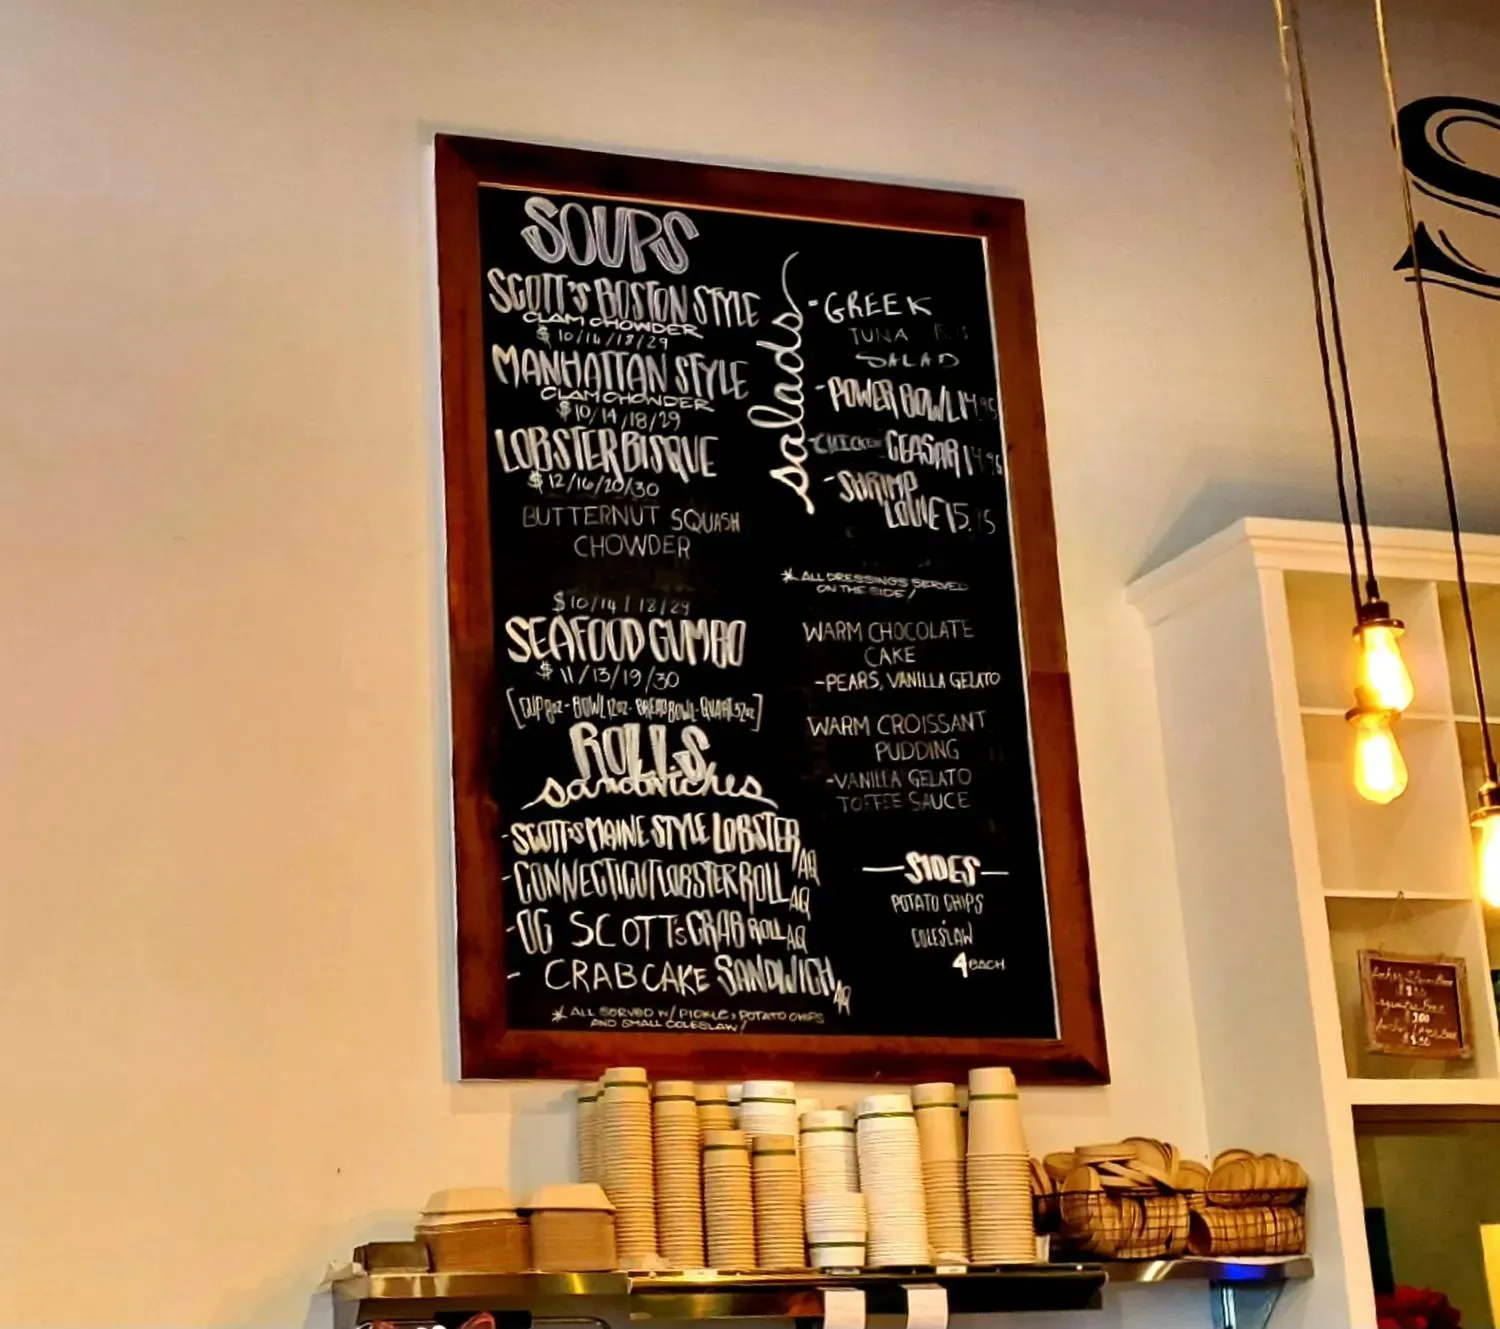 SOUPS
SCOTT'S BOSTON STYLE
CLAM CHOWDER
$10/14/18/29
MANHATTAN STYLE
CLAM CHOWDER
$10/14/18/29
LOBSTER BISQUE
$12/16/20/30
BUTTERNUT SQUASH
CHOWDER
$10/14/18/29
SEAFOOD GUMBO
$11/13/19/30
[CUP 8oz - BOWL 12oz - BREAD BOWL - QUART 32oz]
ROLLS
sandwiches
- SCOTT'S MAINE STYLE LOBSTER AQ
- CONNECTICUT LOBSTER ROLL AQ
- OG SCOTT'S CRAB ROLL AQ
- CRABCAKE SANDWICH AQ
* ALL SERVED W/ PICKLE, POTATO CHIPS
AND SMALL COLESLAW!
salads
- GREEK
TUNA
SALAD
- POWER BOWL 14.95
- CHICKEN CEASAR 14.95
- SHRIMP
LOUIE 15.
* ALL DRESSINGS SERVED
ON THE SIDE!
WARM CHOCOLATE
CAKE
- PEARS, VANILLA GELATO
WARM CROISSANT
PUDDING
- VANILLA GELATO
TOFFEE SAUCE
— SIDES —
POTATO CHIPS
COLESLAW
4 EACH
S